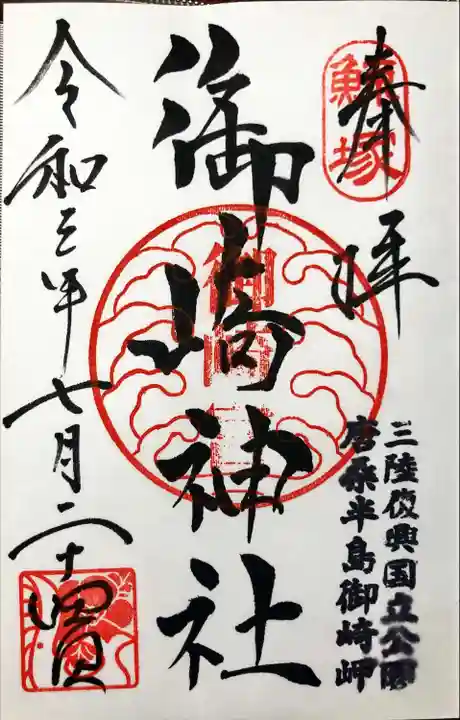 奉拝
鯨塚
三陸復興国立公園
唐桑半島御崎岬
御崎神社
令和三年七月二十